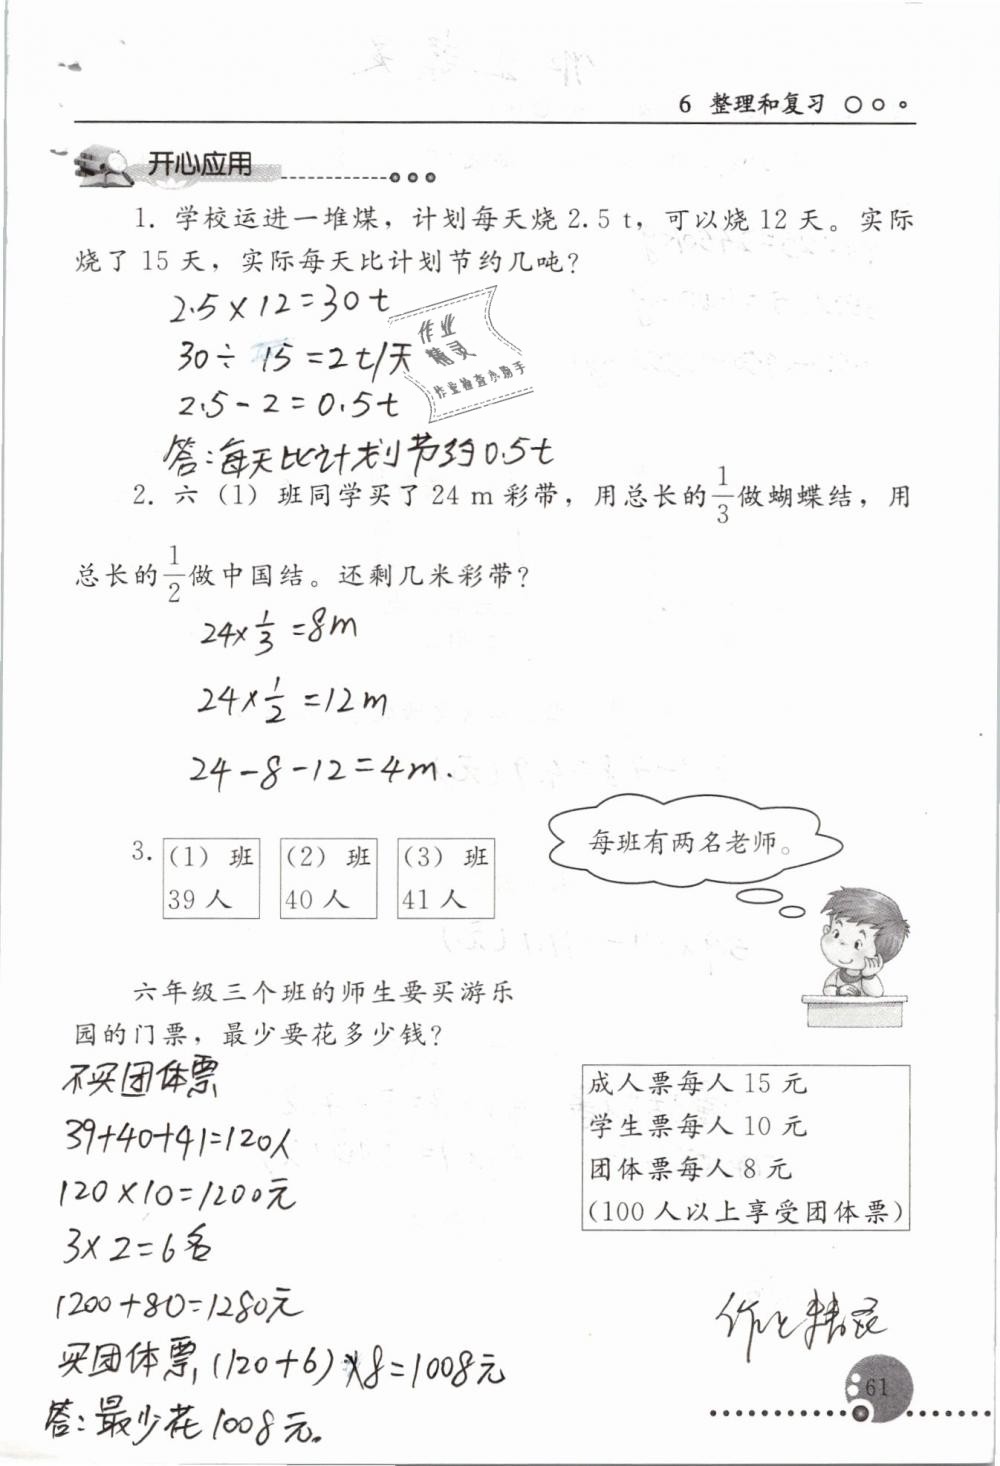 6 整理和复习
开心应用
1. 学校运进一堆煤，计划每天烧 2.5 t，可以烧 12 天。实际
烧了 15 天，实际每天比计划节约几吨？
2.5×12=30t
30÷15=2t/天
2.5-2=0.5t
答:每天比计划节约0.5t
作业
精灵
作业检查小助手
2. 六（1）班同学买了 24 m 彩带，用总长的1/3做蝴蝶结，用
总长的1/2做中国结。还剩几米彩带？
24×1/3=8m
24×1/2=12m
24-8-12=4m.
每班有两名老师。
3. （1）班 （2）班 （3）班
39 人 40 人 41 人
六年级三个班的师生要买游乐
园的门票，最少要花多少钱？
成人票每人 15 元
学生票每人 10 元
团体票每人 8 元
(100 人以上享受团体票)
不买团体票
39+40+41=120人
120×10=1200元
3×2=6名
1200+80=1280元
买团体票(120+6)×8=1008元
答:最少花1008元。
61